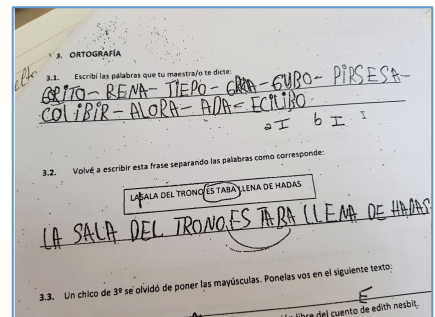 3. ORTOGRAFÍA
3.1. Escribí las palabras que tu maestra/o te dicte:
GRITO - RENA - TIEPO - - GUBO - PIRSESA -
COLIBIR - ALORA - ADA - ECILIBO
a I b I
3.2. Volvé a escribir esta frase separando las palabras como corresponde:
LASALA DEL TRONO ES TABA LLENA DE HADAS
LA SALA DEL TRONO ES TABA LLENA DE HADAS
3.3. Un chico de 3º se olvidó de poner las mayúsculas. Ponelas vos en el siguiente texto:
E
libre del cuento de edith nesbit.